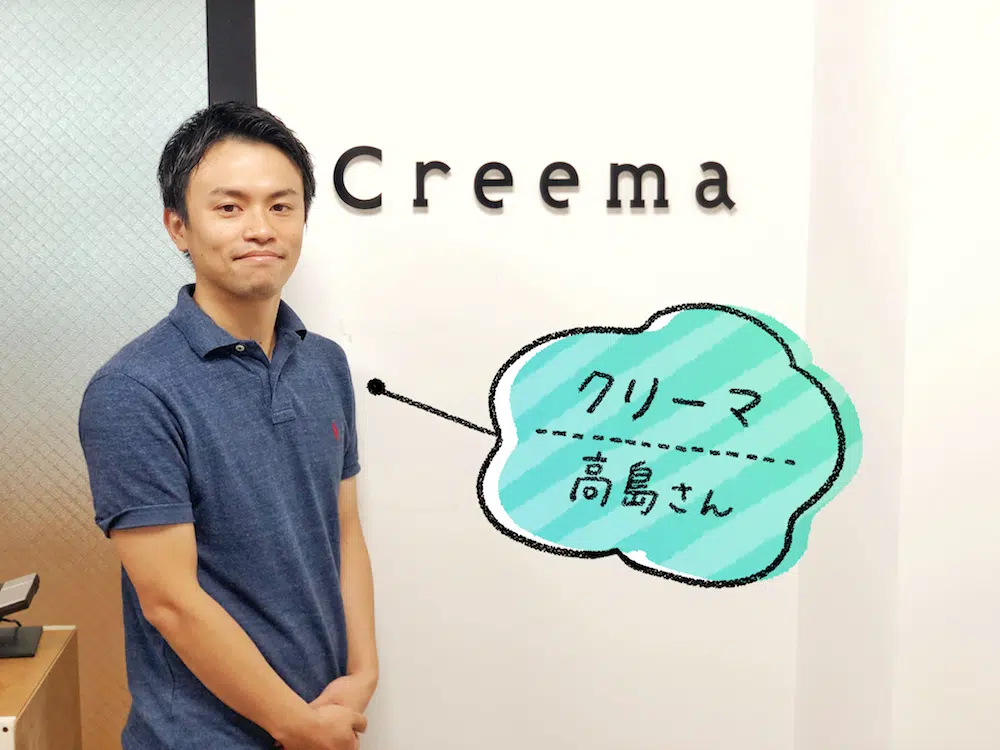 Creema
クリーマ
高島さん